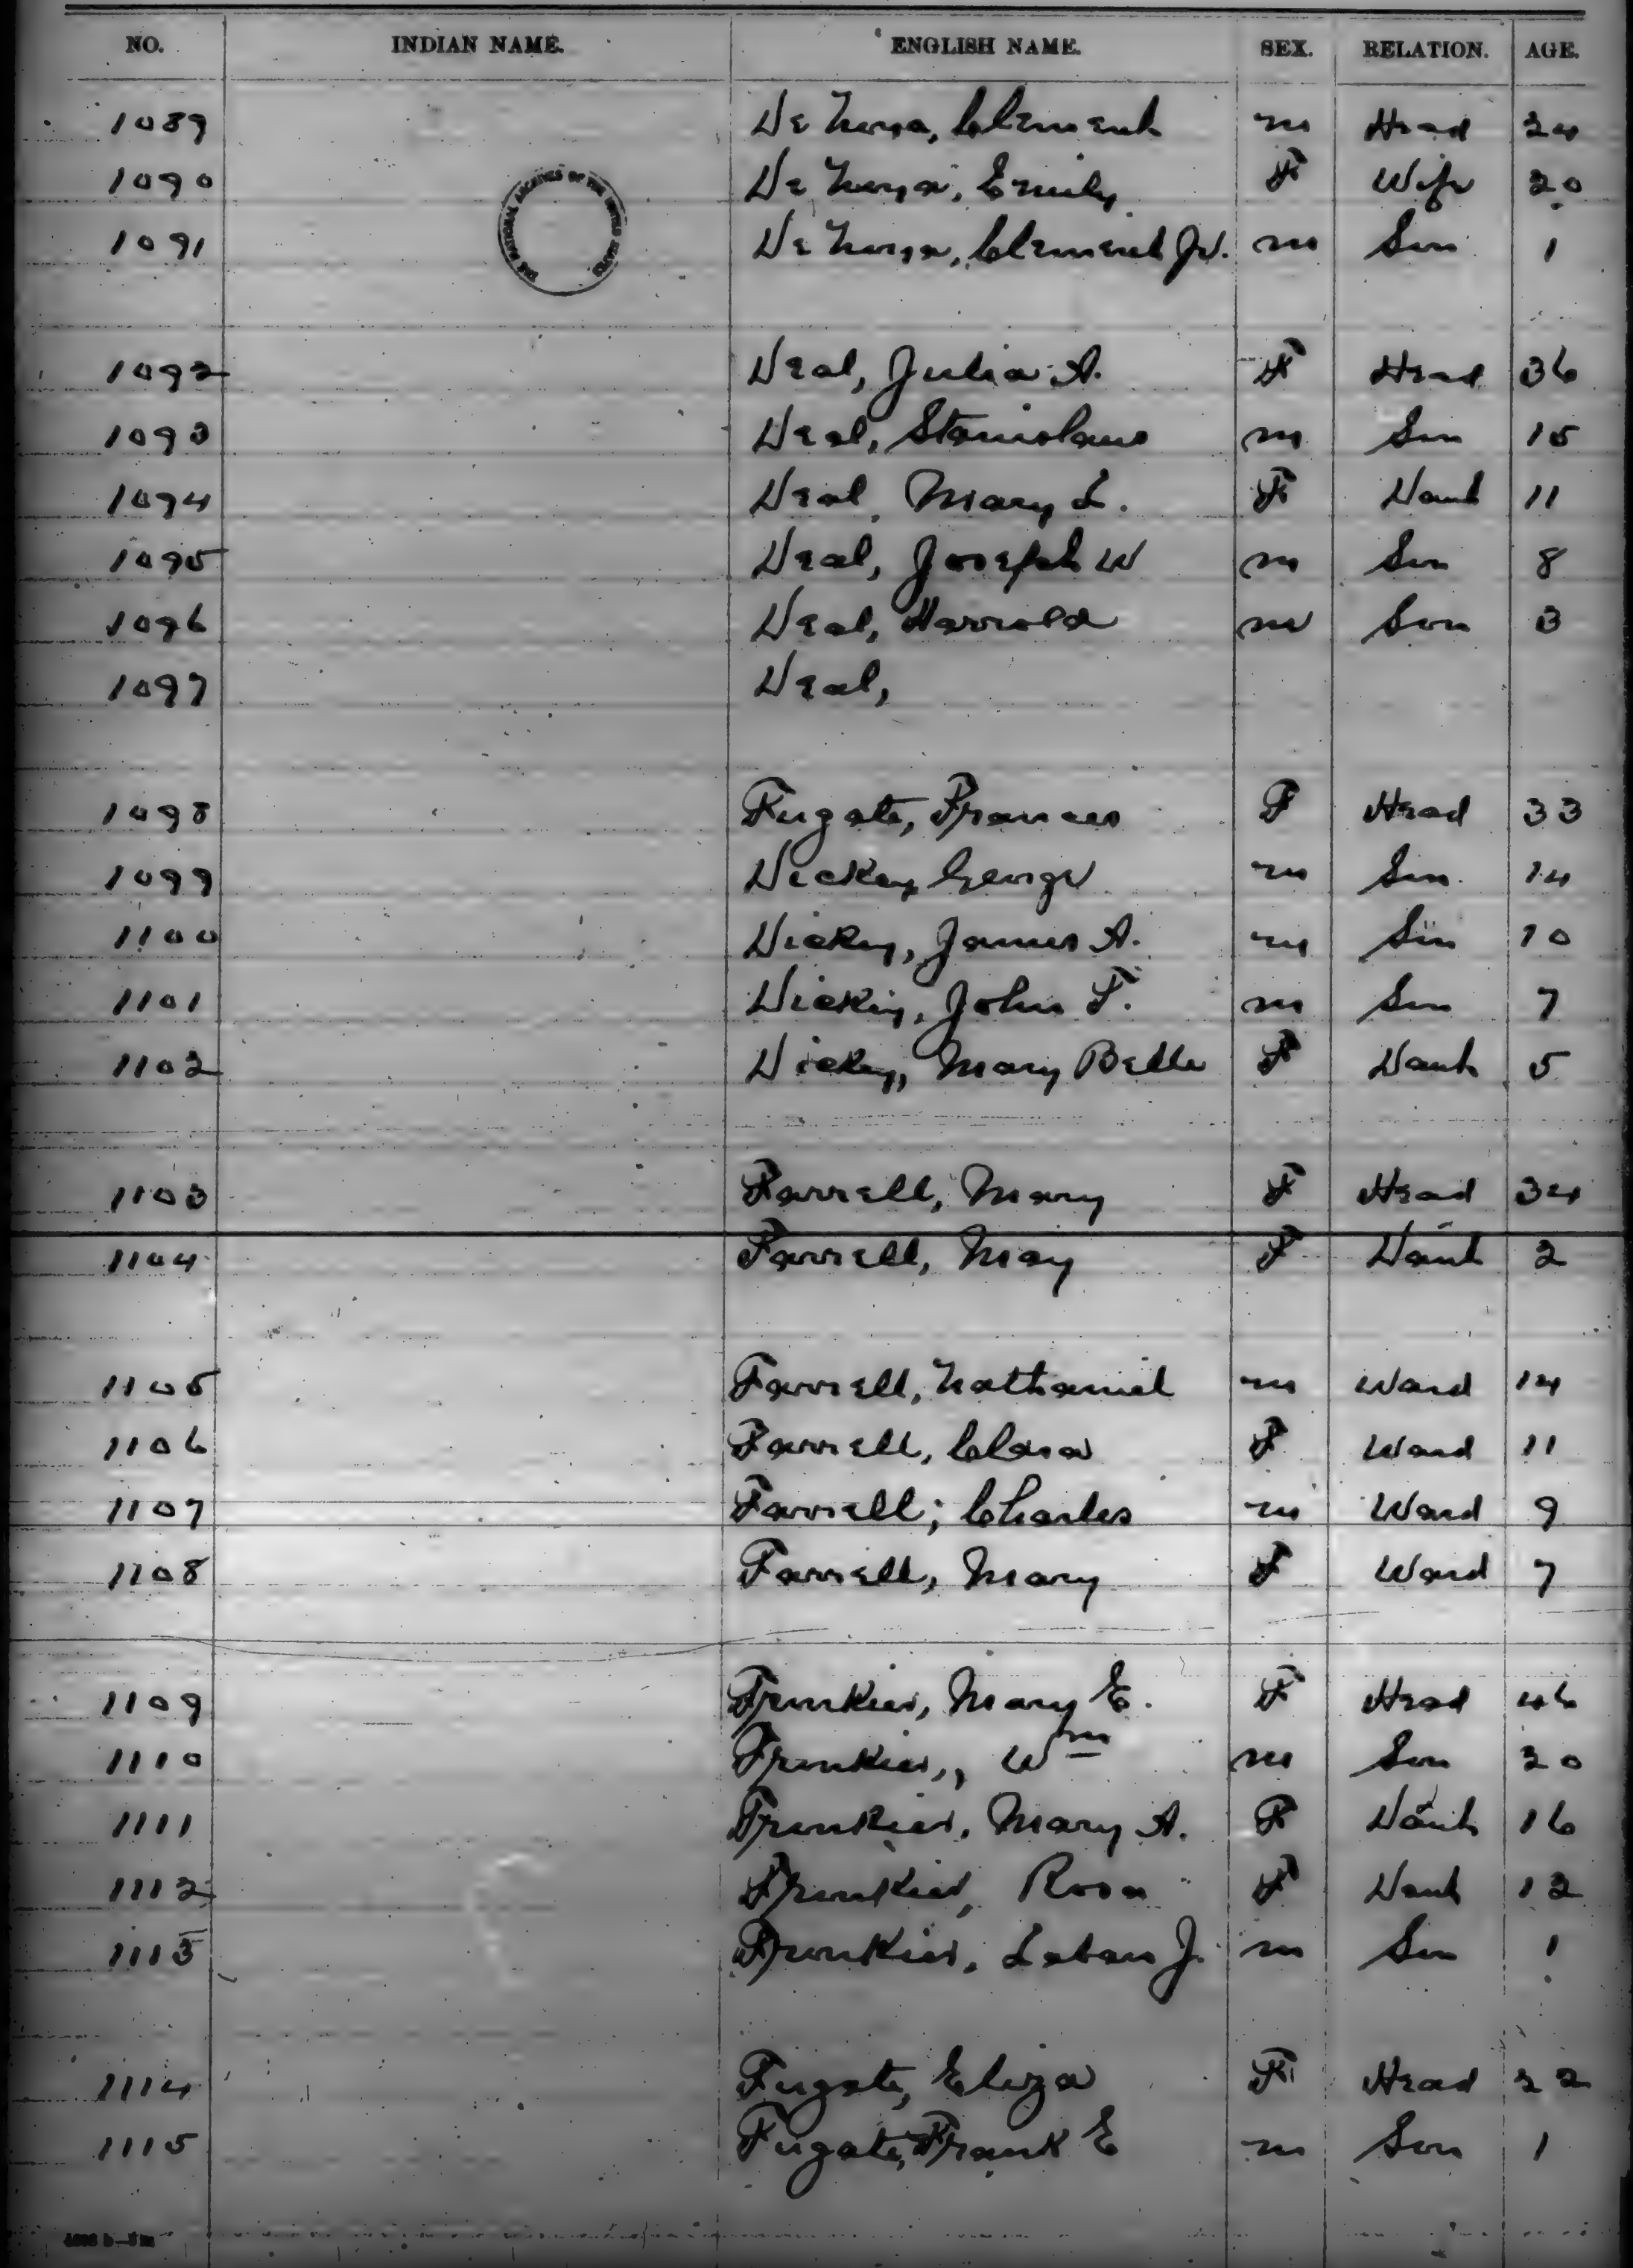 NO. INDIAN NAME. ENGLISH NAME. SEX. RELATION. AGE.
1089 De Noya, Clement m Head 24
1090 De Noya, Emily F Wife 20
THE NATIONAL ARCHIVES OF THE UNITED STATES
1091 De Noya, Clement Jr. m Son 1
1092 Deal, Julia A. F Head 36
1093 Deal, Stanislaus m Son 15
1094 Deal, Mary L. F Daut 11
1095 Deal, Joseph W m Son 8
1096 Deal, Harrold m Son 3
1097 Deal,
1098 Fugate, Frances F Head 33
1099 Dickey George m Son 14
1100 Dickey, James A. m Son 10
1101 Dickey, John F. m Son 7
1102 Dickey, Mary Belle F Daut 5
1103 Farrell, Mary F Head 34
1104 Farrell, May F Daut 2
1105 Farrell, Nathaniel m Ward 14
1106 Farrell, Clara F Ward 11
1107 Farrell; Charles m Ward 9
1108 Farrell, Mary F Ward 7
1109 Fronkier, Mary E. F Head 46
1110 Fronkier,, Wm m Son 20
1111 Fronkier, Mary A. F Daut 16
1112 Fronkier, Rosa F Daut 12
1113 Fronkier, Laban J. m Son 1
1114 Fugate, Eliza F Head 22
1115 Fugate, Frank E m Son 1